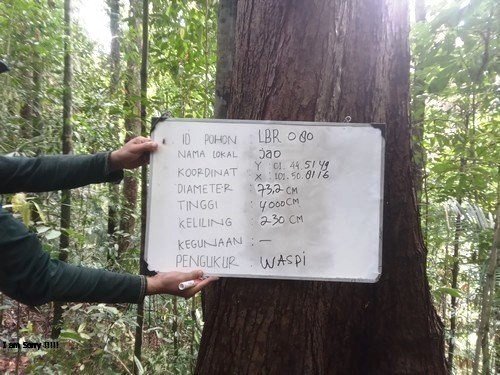 ID POHON : LBR 080
NAMA LOKAL : Jao
KOORDINAT : Y : 01. 44. 5149
X : 101. 50. 8116
DIAMETER : 73,2 CM
TINGGI : 4000 CM
KELILING : 230 CM
KEGUNAAN : —
PENGUKUR : WASPI
I am Sorry !!!!!